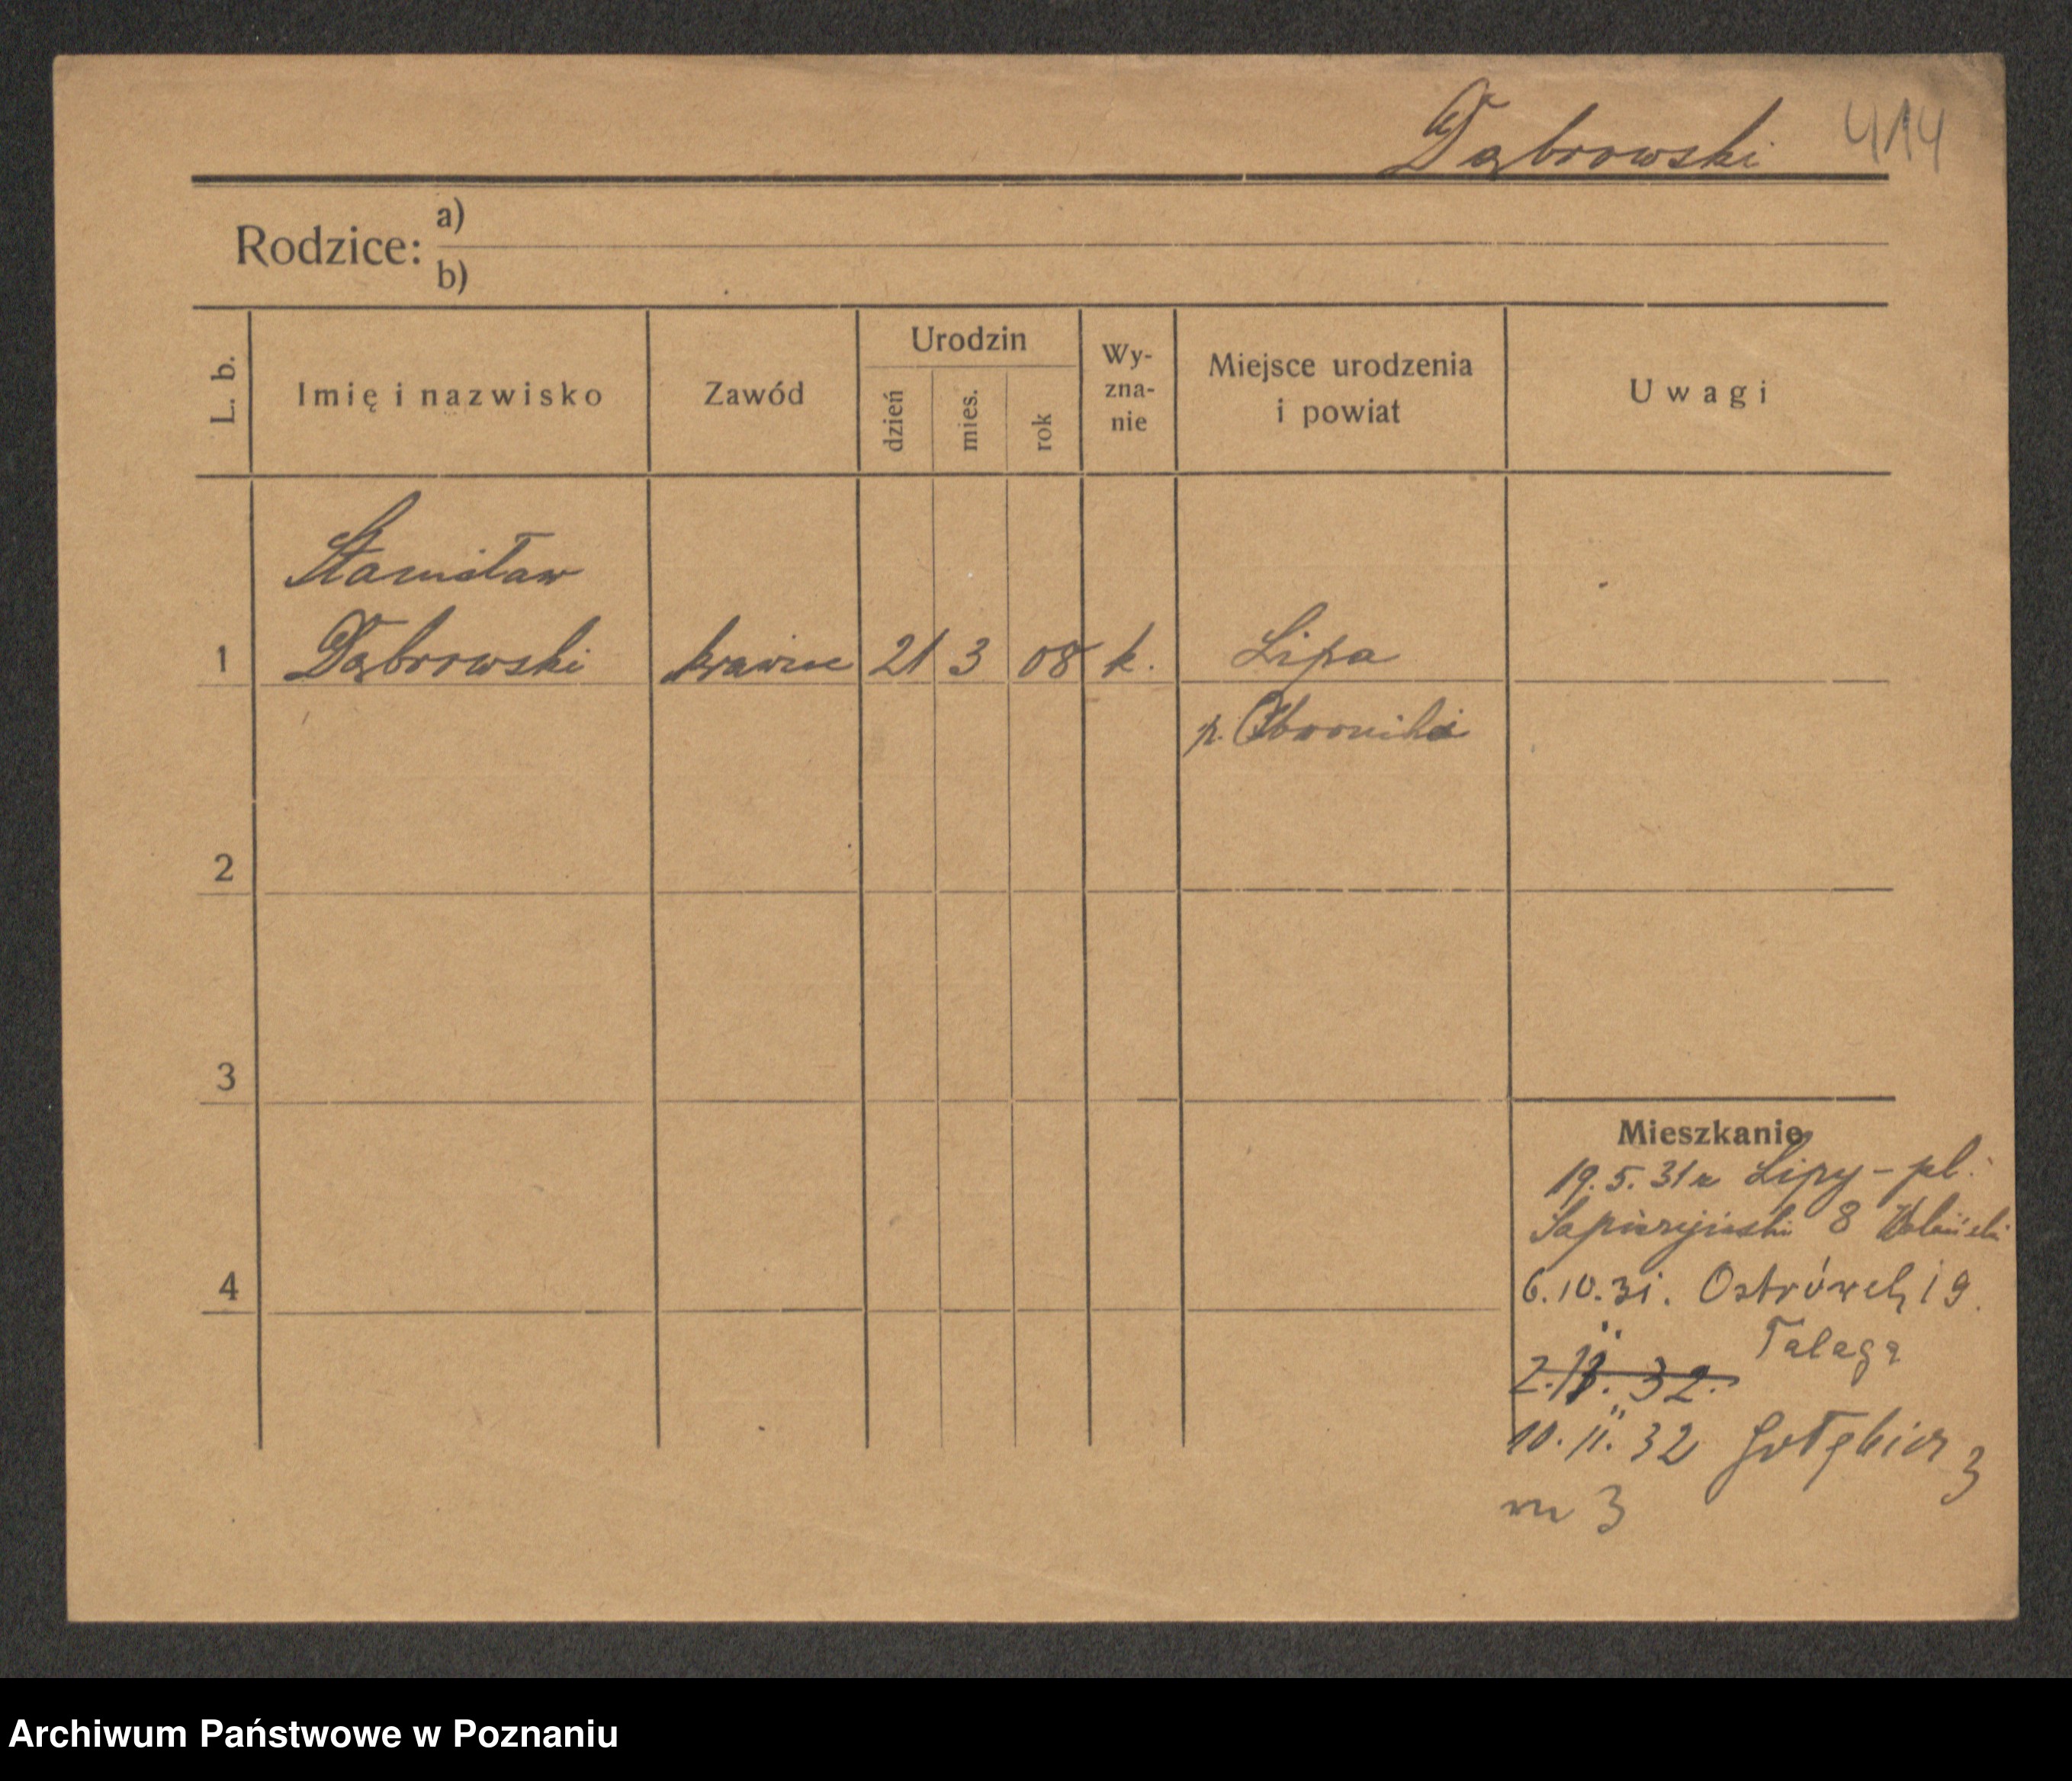 Dąbrowski 414
Rodzice: a)
b)
L. b.
Imię i nazwisko
Zawód
Urodzin
dzień
mies.
rok
Wy-
zna-
nie
Miejsce urodzenia
i powiat
Uwagi
Stanisław
1 Dąbrowski krawiec 21 3 08 k. Lipa
p. Oborniki
2
3
4
Mieszkanie
19.5.31 z Lipy - pl.
Sapieżyński 8
6.10.31. Ostrówek 19.
Talaga
2.11.32.
10.11.32 Gołębia 3
m 3
Archiwum Państwowe w Poznaniu